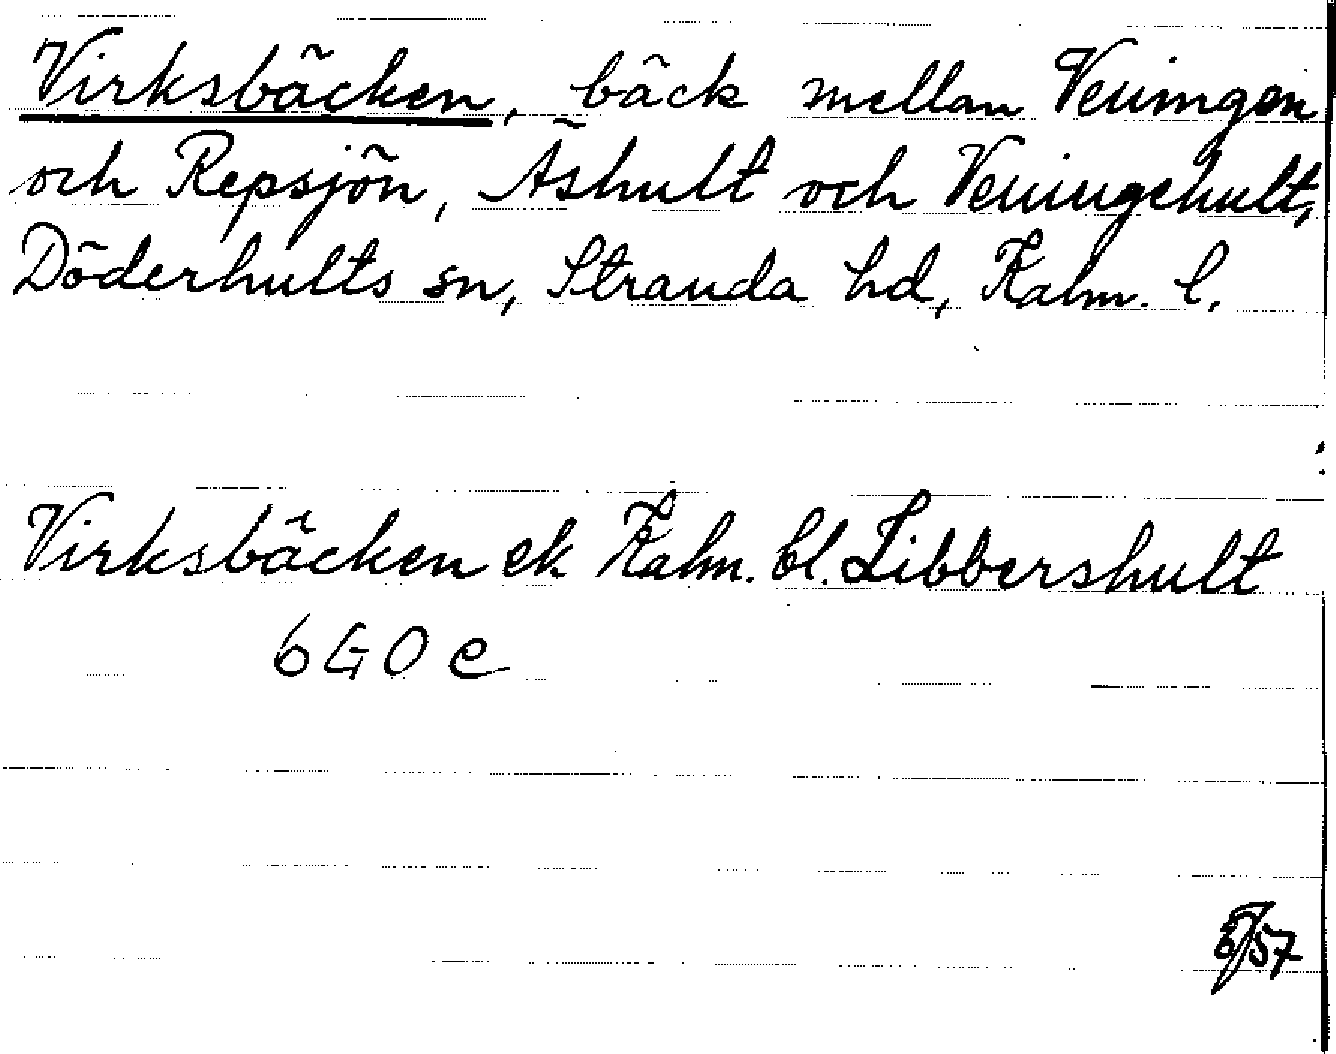 Virksbäcken, bäck mellan Veningen
och Repsjön, Äshult och Veningehult,
Döderhults sn, Stranda hd, Kalm. l.
Virksbäcken ek Kalm. bl. Libbershult
6G0c
57